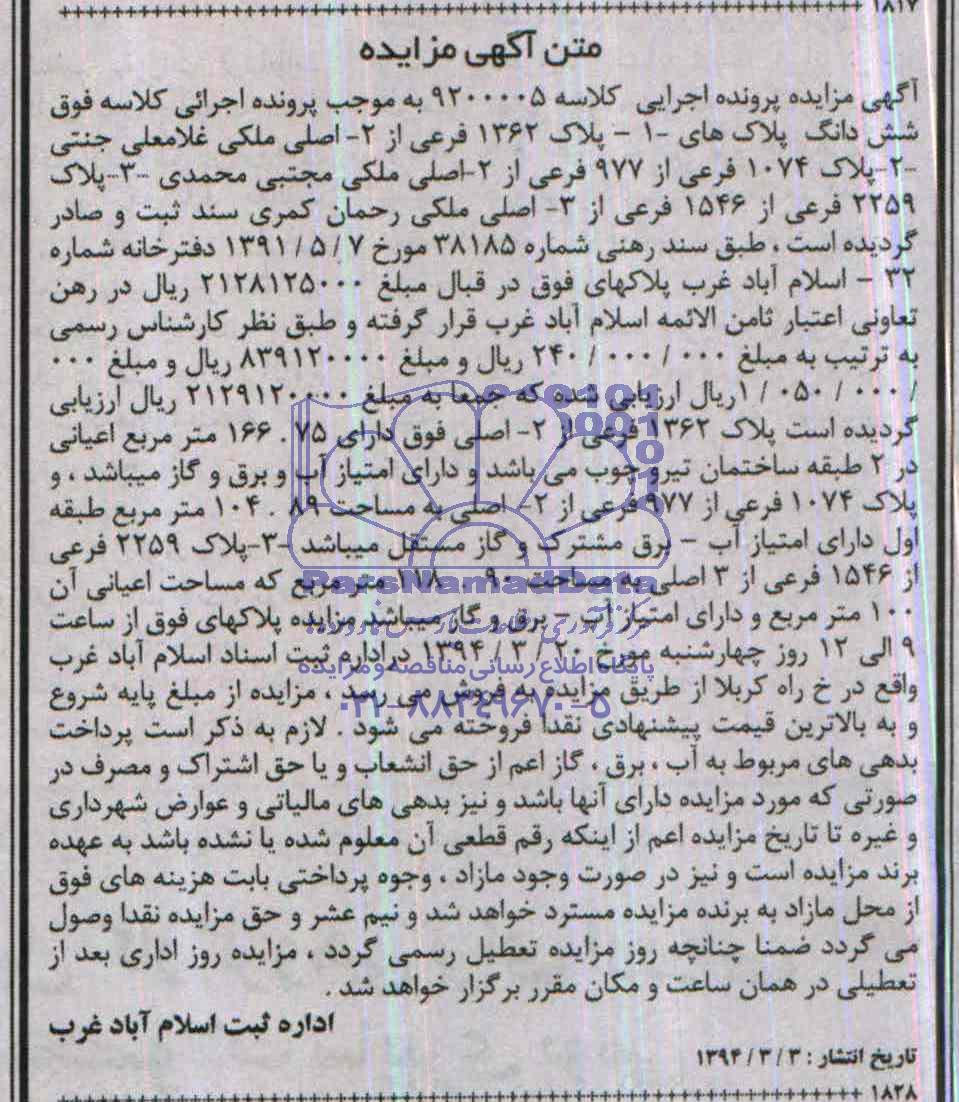 ۱۸۱۷
متن آگهی مزایده
آگهی مزایده پرونده اجرایی کلاسه ۹۲۰۰۰۰۵ به موجب پرونده اجرائی کلاسه فوق
شش دانگ پلاک های -۱ - پلاک ۱۳۶۲ فرعی از ۲- اصلی ملکی غلامعلی جنتی
-۲-پلاک ۱۰۷۴ فرعی از ۹۷۷ فرعی از ۲-اصلی ملکی مجتبی محمدی -۳-پلاک
۲۲۵۹ فرعی از ۱۵۴۶ فرعی از ۳- اصلی ملکی رحمان کمری سند ثبت و صادر
گردیده است ، طبق سند رهنی شماره ۳۸۱۸۵ مورخ ۷ / ۵ / ۱۳۹۱ دفترخانه شماره
۳۲ - اسلام آباد غرب پلاکهای فوق در قبال مبلغ ۲۱۲۸۱۲۵۰۰۰ ریال در رهن
تعاونی اعتبار ثامن الائمه اسلام آباد غرب قرار گرفته و طبق نظر کارشناس رسمی
به ترتیب به مبلغ ۰۰۰ / ۰۰۰ / ۲۴۰ ریال و مبلغ ۸۳۹۱۲۰۰۰۰ ریال و مبلغ ۰۰۰
/ ۰۰۰ / ۰۵۰ / ۱ریال ارزیابی شده که جمعا به مبلغ ۲۱۲۹۱۲۰۰۰۰ ریال ارزیابی
گردیده است پلاک ۱۳۶۲ فرعی از ۲- اصلی فوق دارای ۷۵ . ۱۶۶ متر مربع اعیانی
در ۲ طبقه ساختمان تیرو چوب می باشد و دارای امتیاز آب و برق و گاز میباشد ، و
پلاک ۱۰۷۴ فرعی از ۹۷۷ فرعی از ۲- اصلی به مساحت ۸۹ . ۱۰۴ متر مربع طبقه
اول دارای امتیاز آب - برق مشترک و گاز مستقل میباشد -۳-پلاک ۲۲۵۹ فرعی
از ۱۵۴۶ فرعی از ۳ اصلی به مساحت ۹۰ . ۱۱۸ متر مربع که مساحت اعیانی آن
۱۰۰ متر مربع و دارای امتیاز آب - برق و گاز میباشد مزایده پلاکهای فوق از ساعت
۹ الی ۱۲ روز چهارشنبه مورخ ۲۰ / ۳ / ۱۳۹۴ دراداره ثبت اسناد اسلام آباد غرب
واقع در خ راه کربلا از طریق مزایده به فروش می رسد ، مزایده از مبلغ پایه شروع
و به بالاترین قیمت پیشنهادی نقدا فروخته می شود . لازم به ذکر است پرداخت
بدهی های مربوط به آب ، برق ، گاز اعم از حق انشعاب و یا حق اشتراک و مصرف در
صورتی که مورد مزایده دارای آنها باشد و نیز بدهی های مالیاتی و عوارض شهرداری
و غیره تا تاریخ مزایده اعم از اینکه رقم قطعی آن معلوم شده یا نشده باشد به عهده
برند مزایده است و نیز در صورت وجود مازاد ، وجوه پرداختی بابت هزینه های فوق
از محل مازاد به برنده مزایده مسترد خواهد شد و نیم عشر و حق مزایده نقدا وصول
می گردد ضمنا چنانچه روز مزایده تعطیل رسمی گردد ، مزایده روز اداری بعد از
تعطیلی در همان ساعت و مکان مقرر برگزار خواهد شد .
اداره ثبت اسلام آباد غرب
تاریخ انتشار : ۳ / ۳ / ۱۳۹۴
۱۸۲۸
ParsNamadData
پایگاه اطلاع رسانی مناقصه و مزایده
۰۲۱-۸۸۳۴۹۶۷۰-۵